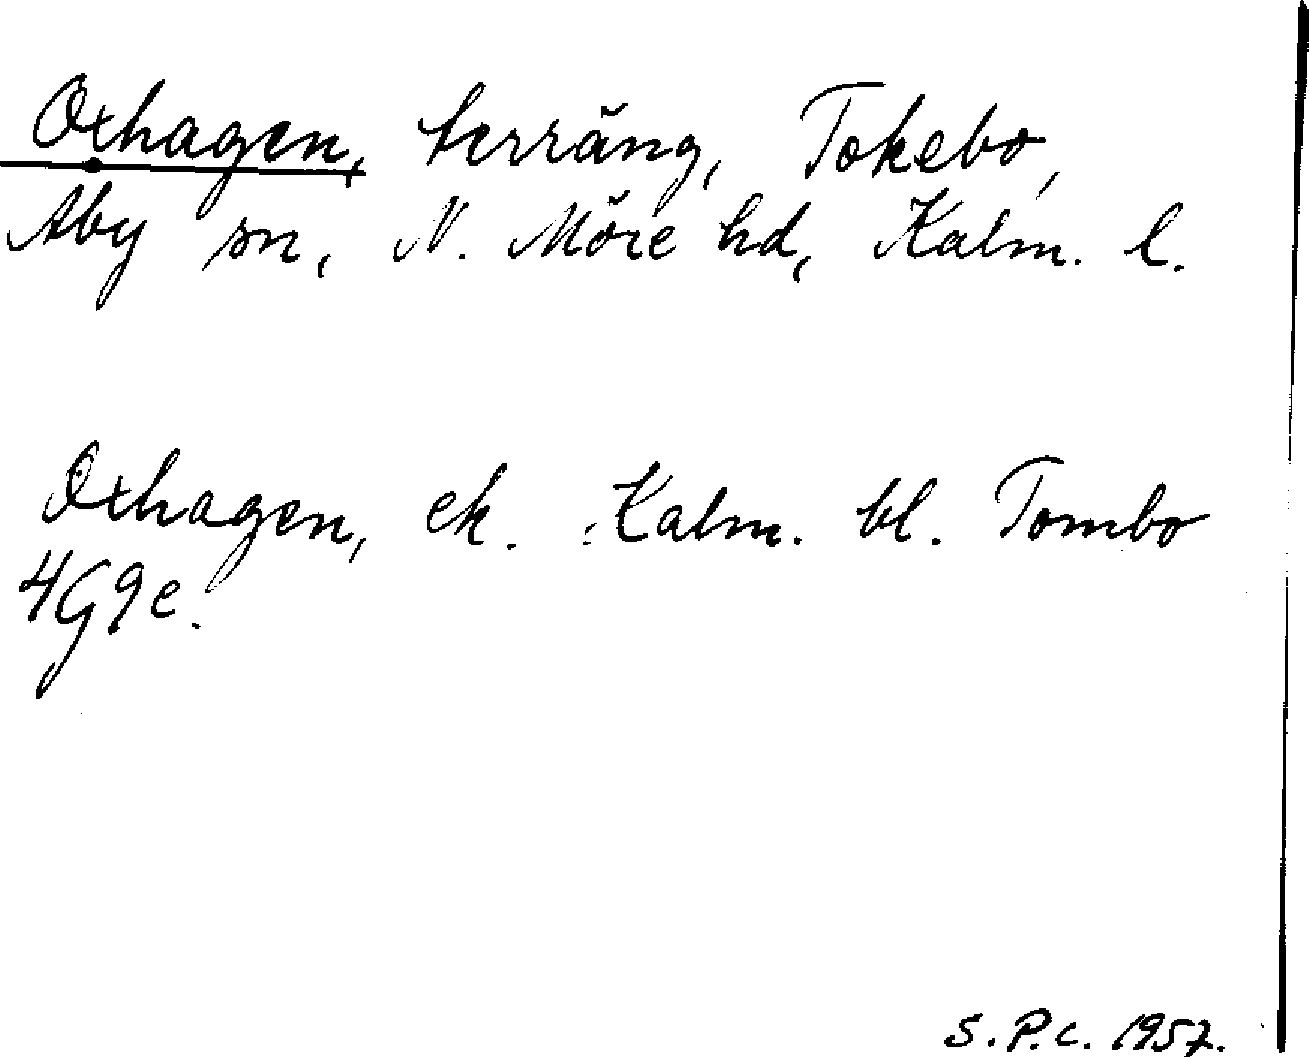 Oxhagen, terräng, Tokebo,
Åby sn, N. Möre hd, Kalm. l.
Oxhagen, ek. Kalm. bl. Tombo
4G9e.
S.P.C. 1957.